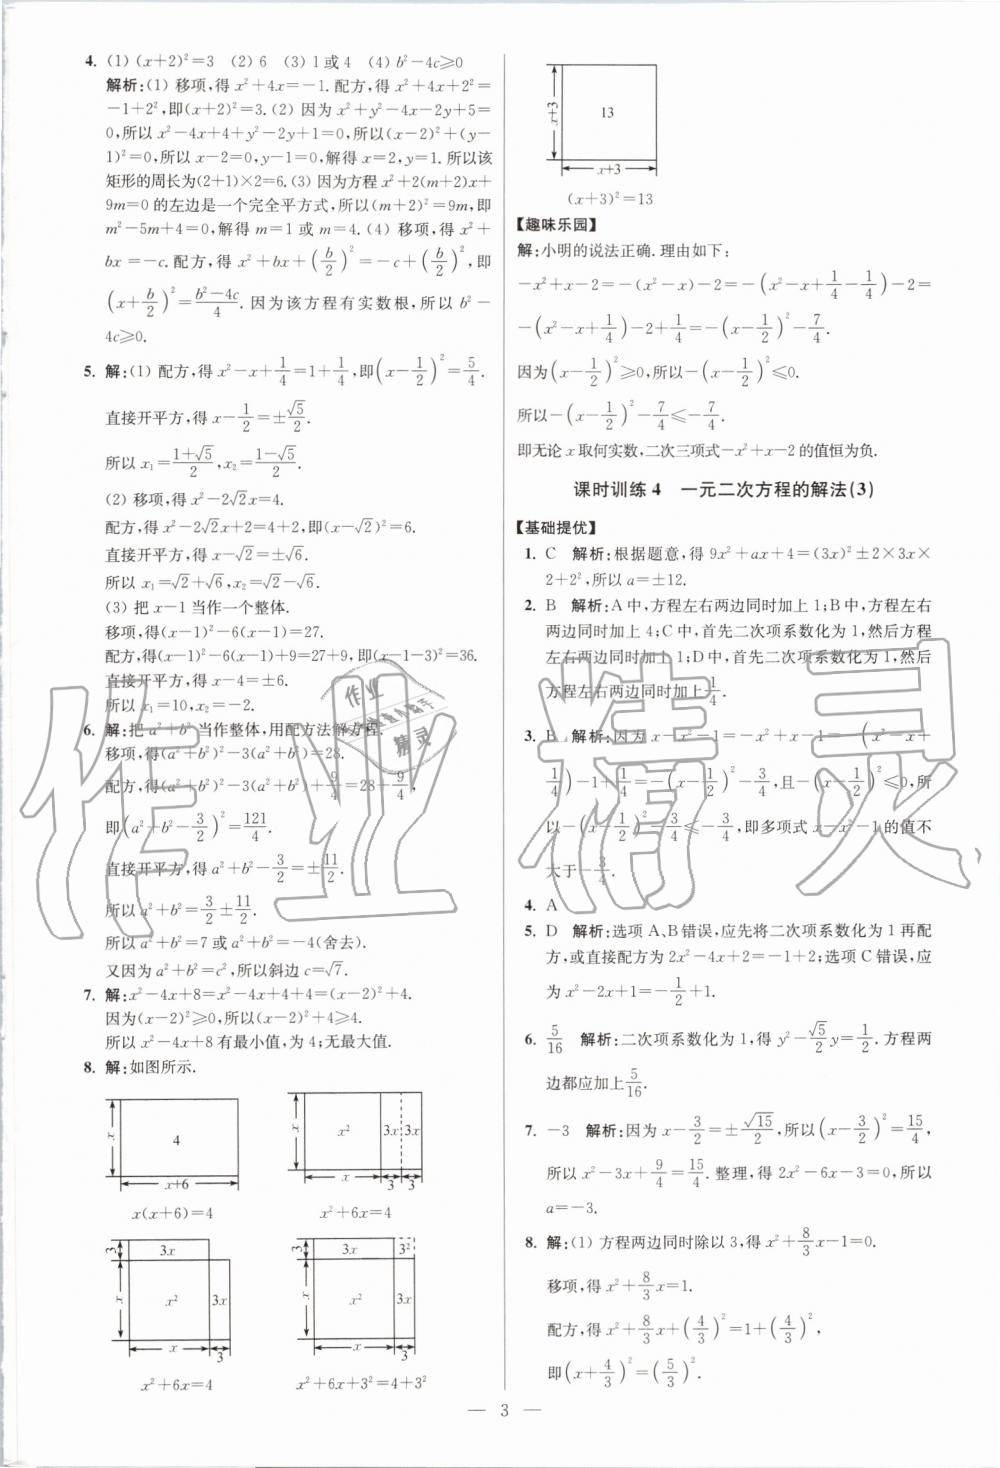 4. (1) (x+2)²=3 (2) 6 (3) 1或4 (4) b²-4c≥0
解析:(1) 移项,得 x²+4x=-1. 配方,得 x²+4x+2²=
-1+2²,即(x+2)²=3. (2) 因为 x²+y²-4x-2y+5=
0,所以 x²-4x+4+y²-2y+1=0,所以(x-2)²+(y-
1)²=0,所以 x-2=0,y-1=0,解得 x=2,y=1. 所以该
矩形的周长为(2+1)×2=6. (3) 因为方程 x²+2(m+2)x+
9m=0 的左边是一个完全平方式,所以(m+2)²=9m,即
m²-5m+4=0,解得 m=1 或 m=4. (4) 移项,得 x²+
bx=-c. 配方,得 x²+bx+(b/2)²=-c+(b/2)²,即
(x+b/2)²=(b²-4c)/4. 因为该方程有实数根,所以 b²-
4c≥0.
5. 解:(1) 配方,得 x²-x+1/4=1+1/4,即(x-1/2)²=5/4.
直接开平方,得 x-1/2=±√5/2.
所以 x₁=(1+√5)/2,x₂=(1-√5)/2.
(2) 移项,得 x²-2√2x=4.
配方,得 x²-2√2x+2=4+2,即(x-√2)²=6.
直接开平方,得 x-√2=±√6.
所以 x₁=√2+√6,x₂=√2-√6.
(3) 把 x-1 当作一个整体.
移项,得(x-1)²-6(x-1)=27.
配方,得(x-1)²-6(x-1)+9=27+9,即(x-1-3)²=36.
直接开平方,得 x-4=±6.
所以 x₁=10,x₂=-2.
6. 解:把 a²+b² 当作整体,用配方法解方程.
移项,得(a²+b²)²-3(a²+b²)=28.
配方,得(a²+b²)²-3(a²+b²)+9/4=28+9/4,
即(a²+b²-3/2)²=121/4.
直接开平方,得 a²+b²-3/2=±11/2.
所以 a²+b²=3/2±11/2.
所以 a²+b²=7 或 a²+b²=-4(舍去).
又因为 a²+b²=c²,所以斜边 c=√7.
7. 解:x²-4x+8=x²-4x+4+4=(x-2)²+4.
因为(x-2)²≥0,所以(x-2)²+4≥4.
所以 x²-4x+8 有最小值,为 4;无最大值.
8. 解:如图所示.
x 4 x+6
x(x+6)=4
x x² 3x 3x x 3 3
x²+6x=4
3 3x x x² 3x x 3
x²+6x=4
3 3x 3² x x² 3x x 3
x²+6x+3²=4+3²
x+3 13 x+3
(x+3)²=13
【趣味乐园】
解:小明的说法正确. 理由如下:
-x²+x-2=-(x²-x)-2=-(x²-x+1/4-1/4)-2=
-(x²-x+1/4)-2+1/4=-(x-1/2)²-7/4.
因为(x-1/2)²≥0,所以-(x-1/2)²≤0.
所以-(x-1/2)²-7/4≤-7/4.
即无论 x 取何实数,二次三项式-x²+x-2 的值恒为负.
课时训练 4 一元二次方程的解法(3)
【基础提优】
1. C 解析:根据题意,得 9x²+ax+4=(3x)²±2×3x×
2+2²,所以 a=±12.
2. B 解析:A 中,方程左右两边同时加上 1;B 中,方程左右
两边同时加上 4;C 中,首先二次项系数化为 1,然后方程
左右两边同时加上 1;D 中,首先二次项系数化为 1,然后
方程左右两边同时加上 1/4.
3. B 解析:因为 x-x²-1=-x²+x-1=-(x²-x+
1/4)-1+1/4=-(x-1/2)²-3/4,且-(x-1/2)²≤0,所
以-(x-1/2)²-3/4≤-3/4,即多项式 x-x²-1 的值不
大于-3/4.
4. A
5. D 解析:选项 A、B 错误,应先将二次项系数化为 1 再配
方,或直接配方为 2x²-4x+2=-1+2;选项 C 错误,应
为 x²-2x+1=-1/2+1.
6. 5/16 解析:二次项系数化为 1,得 y²-√5/2y=1/2. 方程两
边都应加上 5/16.
7. -3 解析:因为 x-3/2=±√15/2,所以(x-3/2)²=15/4,
所以 x²-3x+9/4=15/4. 整理,得 2x²-6x-3=0,所以
a=-3.
8. 解:(1) 方程两边同时除以 3,得 x²+8/3x-1=0.
移项,得 x²+8/3x=1.
配方,得 x²+8/3x+(4/3)²=1+(4/3)²,
即(x+4/3)²=(5/3)².
— 3 —
作业精灵